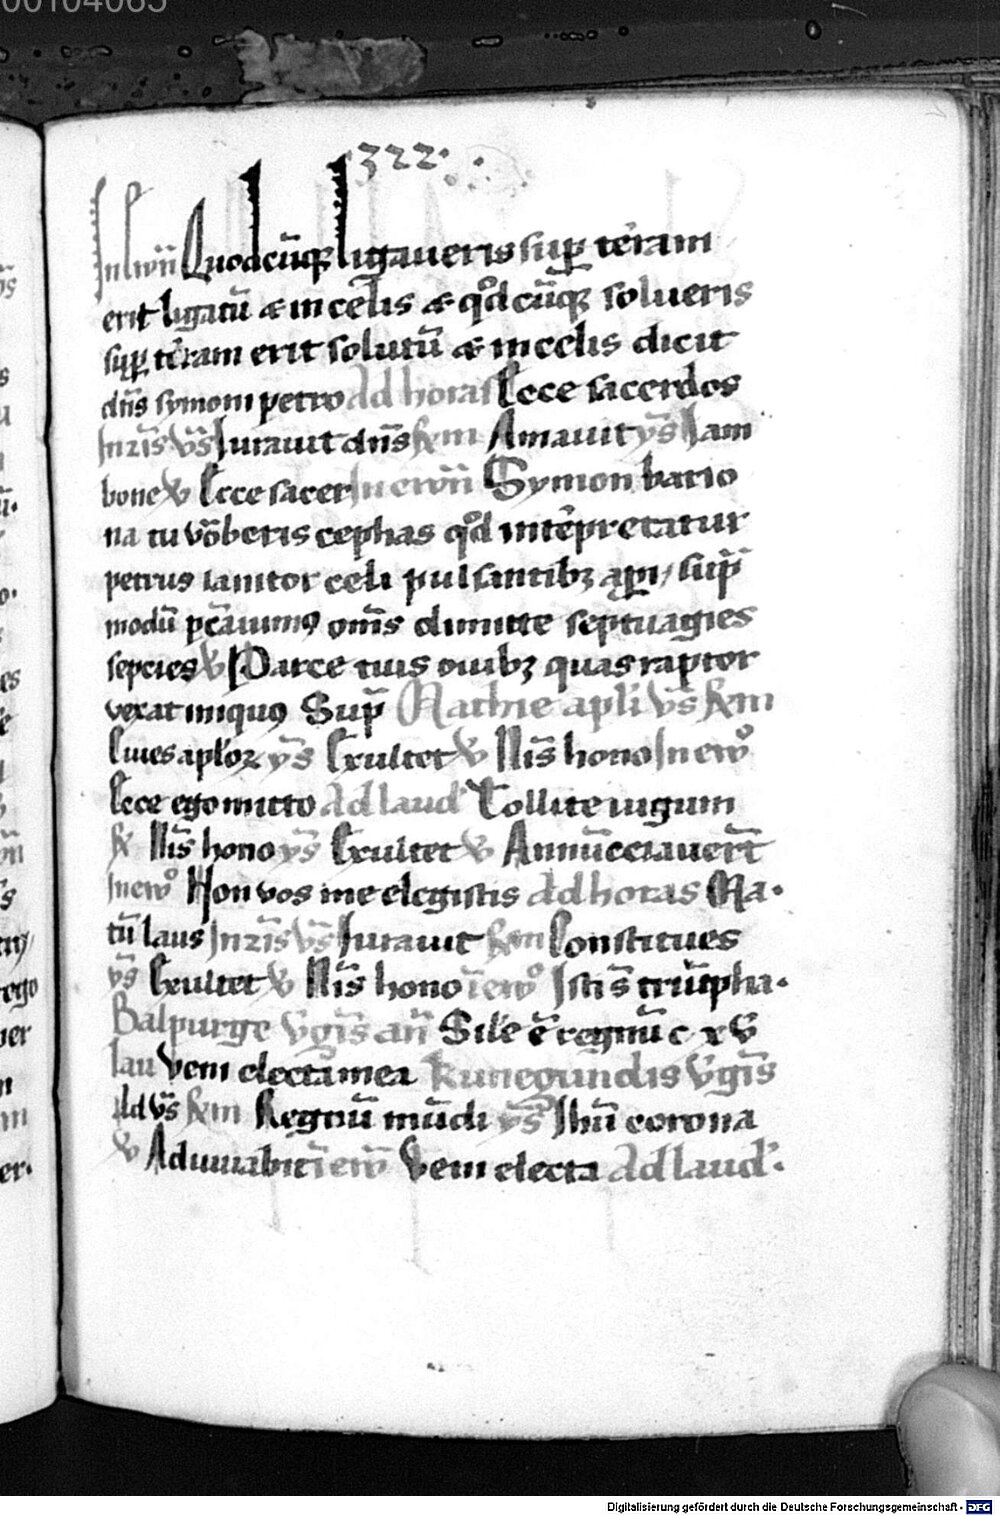 00104065
322.
In ew̄ Quodcūqꝫ ligaueris suꝑ t̄eram
erit ligatū & in celis & qͦd cūqꝫ solueris
suꝑ t̄eram erit solutū & in celis dicit
dn̄s symoni petro Ad horas Ecce sacerdos
In iīs v̄s Iurauit dn̄s Rm Amauit v̄s Iam
bone W Ecce sacer In ew̄ Symon bario
na tu vōberis cephas qͦd int̄epretatur
petrus ianitor celi pulsantibꝫ aꝑi / sup̄
modū pc̄auimꝰ om̄s dimitte septuagies
sepcies W Parce tuis ouibꝫ quas raptor
vexat iniquꝰ Sup̄ Mathie apli v̄s Rm
Ciues aploꝝ v̄s Exultet W Nīs hono In ewͦ
Ecce ego mitto Ad laud Tollite iugum
R Nīs hono v̄s Exultet W Annūcciauer̄t
In ewͦ Non vos me elegistis Ad horas Ma-
tū laus In iīs v̄s Iurauit Rm Constitues
v̄s Exultet W Nīs hono ī ewͦ Isti s̄ triūpha-
Balpurge v̄gīs an̄ Sile ē regnū c xv
lau Veni electa mea Kunegundis v̄gīs
Ad v̄s Rm Regnū mūdi v̄s Ihū corona
W Adiuuabit ī ew̄ Veni electa Ad laud.
Digitalisierung gefördert durch die Deutsche Forschungsgemeinschaft - DFG